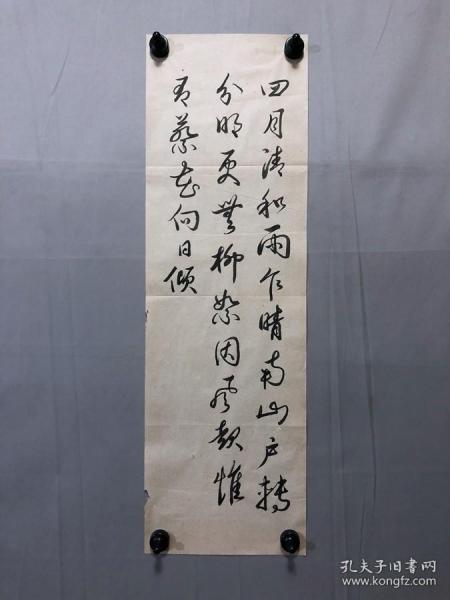 四月清和雨乍晴南山户轉
分明更無柳絮因風起惟
有葵花向日傾
孔夫子旧书网
www.kongfz.com